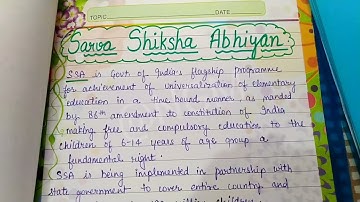 TOPIC DATE
Sarva Shiksha Abhiyan
SSA is Govt of India's flagship programme
for achievement of universalization of elementary
education in a time bound manner, as manded
by 86th amendment to constitution of India
making free and compulsory education to the
children of 6-14 years of age group a
fundamental right.
SSA is being implemented in partnership with
State government to cover entire country and